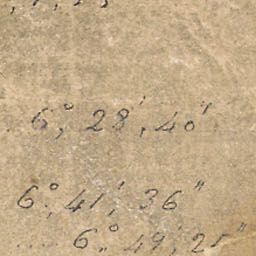 6°, 28', 40"
6°, 41', 36"
6°, 49', 21"